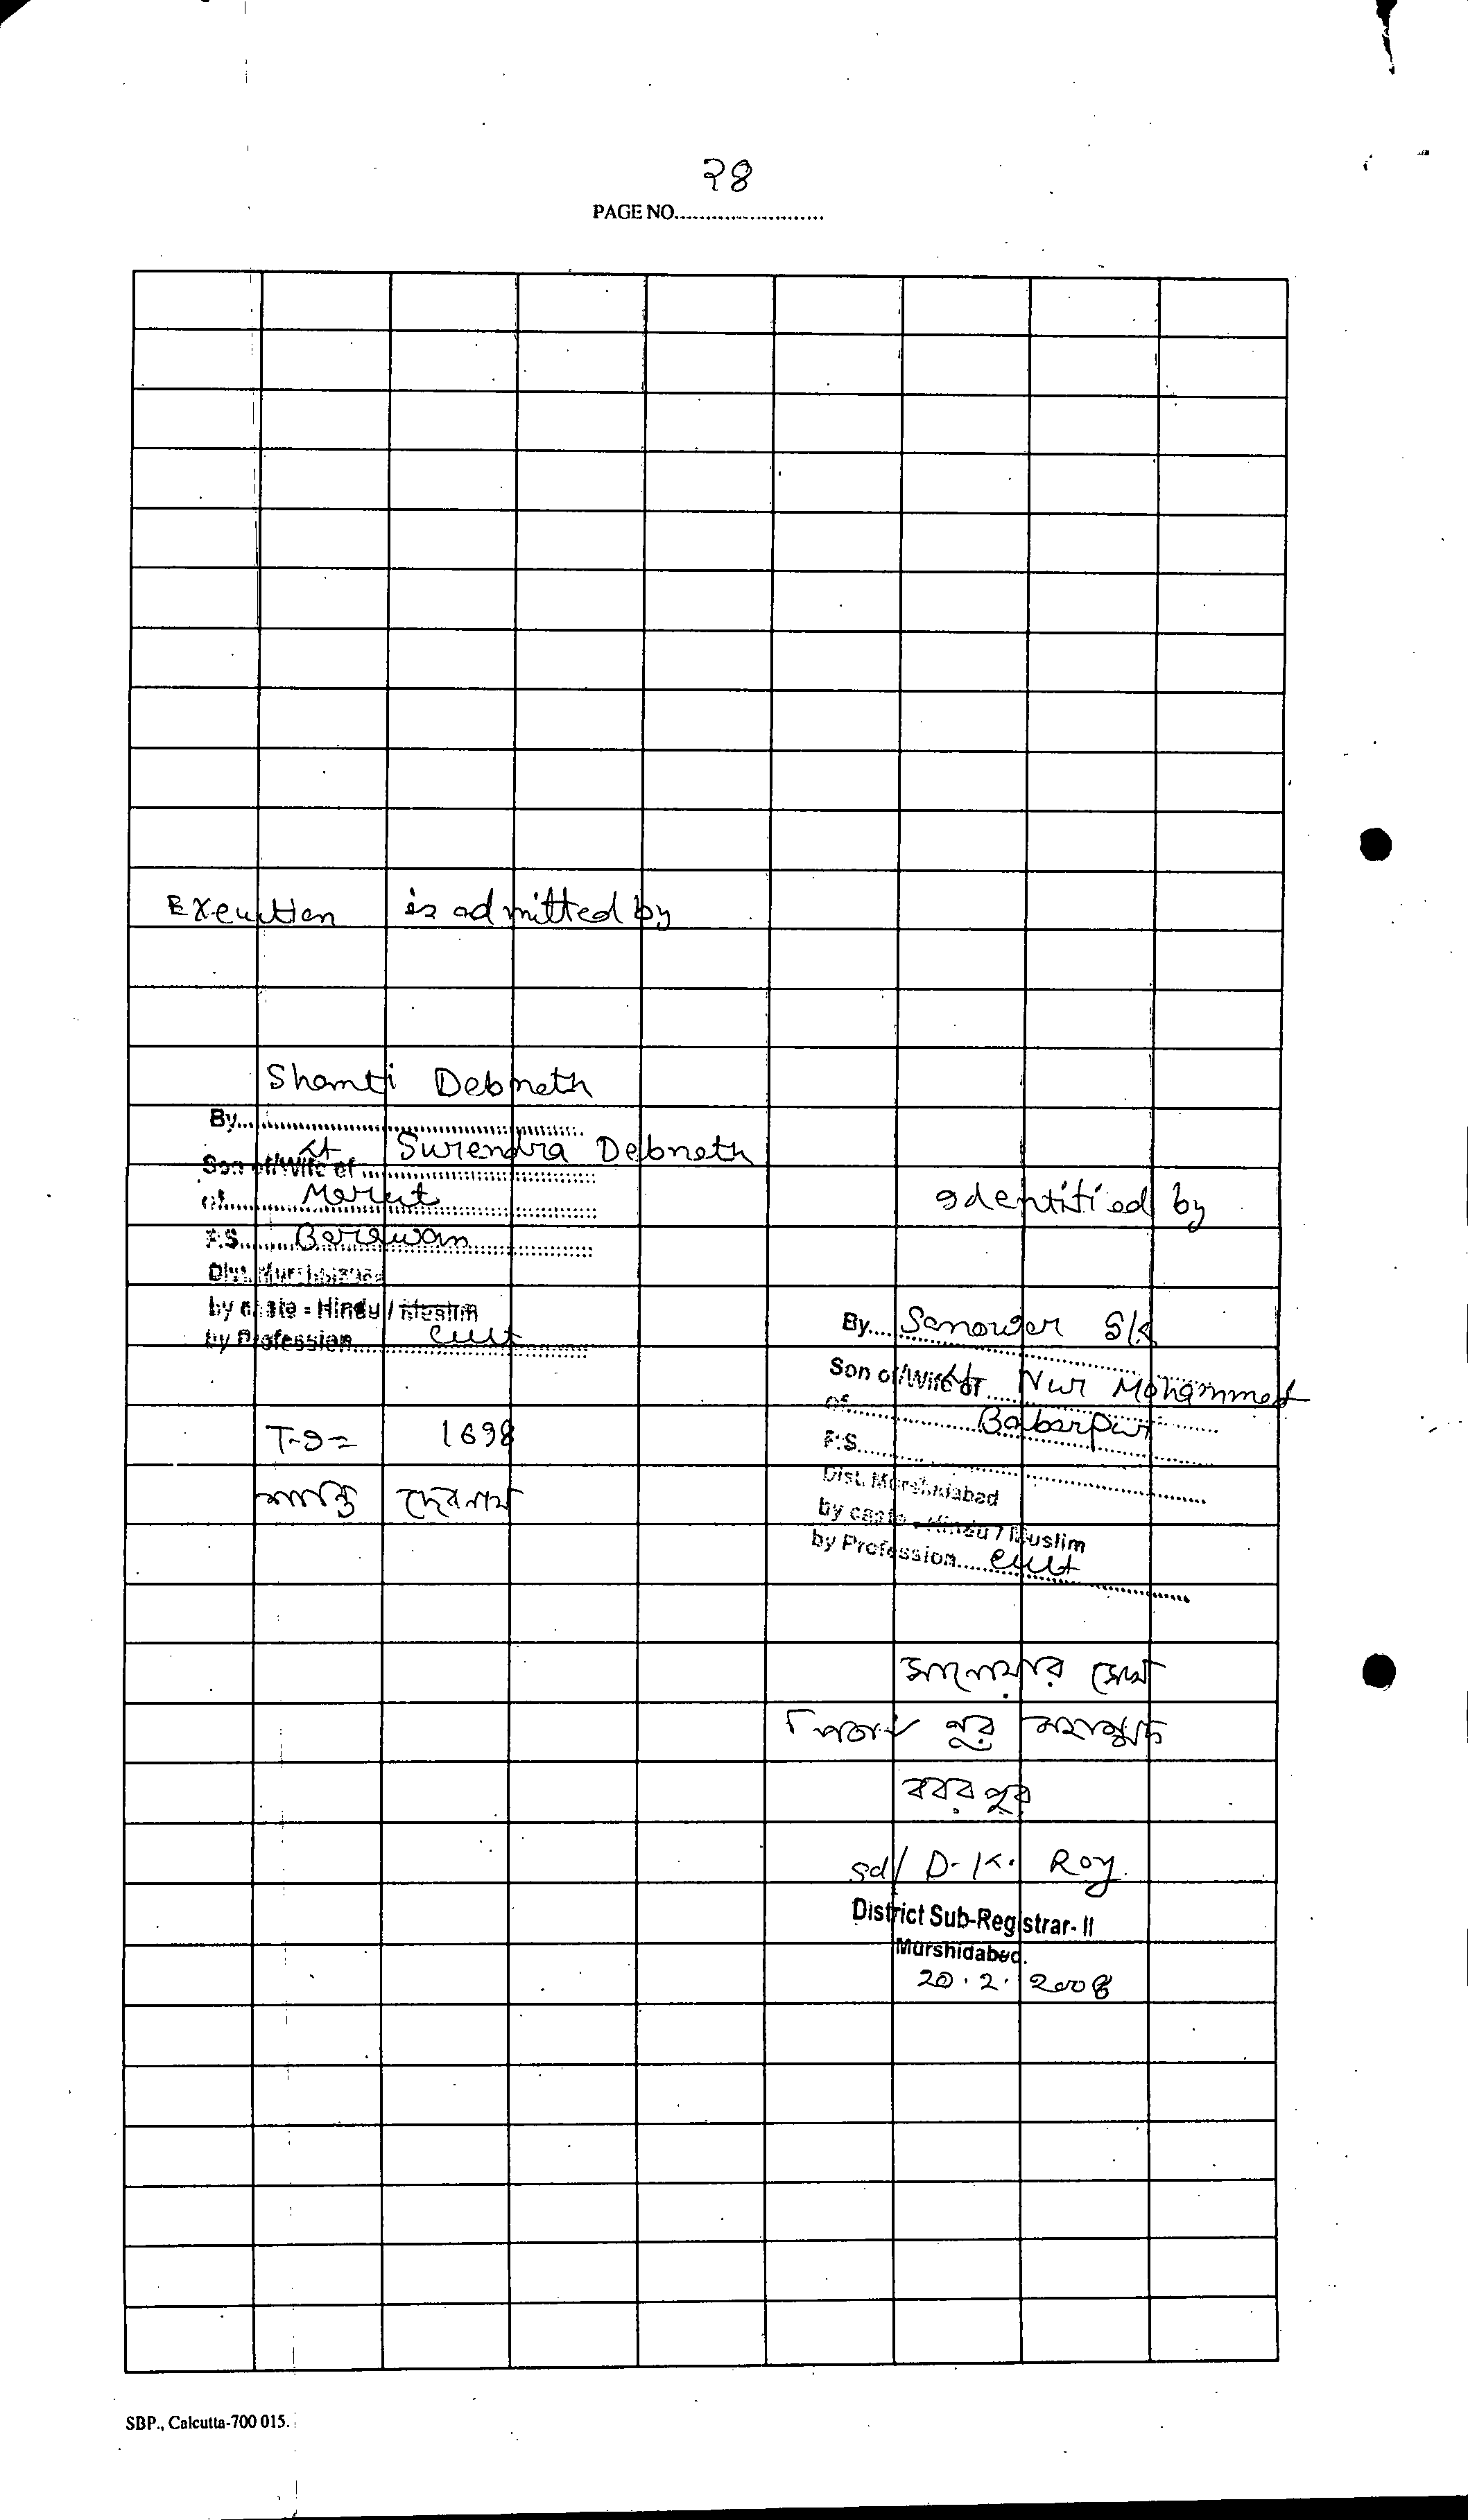 ২৪
PAGE NO........................
Execution is admitted by
Shanti Debnath
By........................
Son of/Wife of Lt Surendra Debnath
of Marut
P.S. Barawan
Dist. Murshidabad
by caste - Hindu / Muslim
by Profession cult
T-I = 1698
শান্তি দেবনাথ
Identified by
By Sanowar Sk
Son of/Wife of Lt Nur Mohammed
of Babarpur
P.S.
Dist. Murshidabad
by caste - Hindu / Muslim
by Profession cult
সানোয়ার সেখ
পিতা নুর মহাম্মদ
বাবরপুর
Sd/ D. K. Roy.
District Sub-Registrar- II
Murshidabad.
20.2.2008
SBP., Calcutta-700 015.